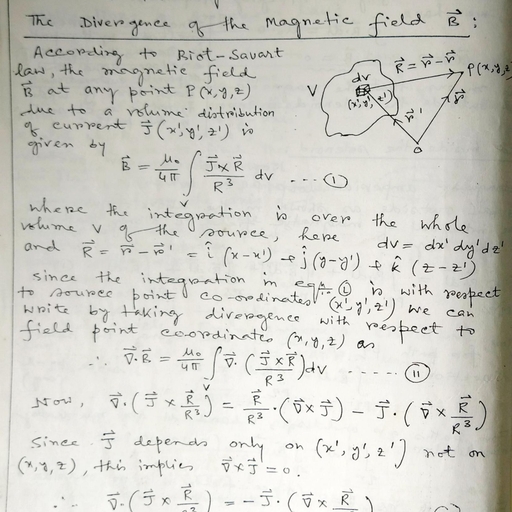 The Divergence of the Magnetic field B⃗ :
According to Biot-Savart
law, the magnetic field
B⃗ at any point P(x,y,z)
due to a volume distribution
of current J⃗(x',y',z') is
given by
V
dv
(x',y',z')
R⃗ = r⃗ - r⃗'
P(x,y,z)
r⃗'
r⃗
O
B⃗ = μ₀/4π ∫_V (J⃗×R⃗)/R³ dv ---- (I)
where the integration is over the whole
volume V of the source, here dv = dx'dy'dz'
and R⃗ = r⃗ - r⃗' = î(x-x') + ĵ(y-y') + k̂(z-z')
Since the integration in eqn. (I) is with respect
to source point co-ordinates (x',y',z') we can
write by taking divergence with respect to
field point coordinates (x,y,z) as
∴ ∇⃗·B⃗ = μ₀/4π ∫_V ∇⃗·(J⃗×R⃗/R³)dv ------ (II)
Now, ∇⃗·(J⃗ × R⃗/R³) = R⃗/R³·(∇⃗×J⃗) - J⃗·(∇⃗ × R⃗/R³)
Since J⃗ depends only on (x',y',z') not on
(x,y,z), this implies ∇⃗×J⃗ = 0.
∴ ∇⃗·(J⃗ × R⃗/R³) = -J⃗·(∇⃗ × R⃗/R³)